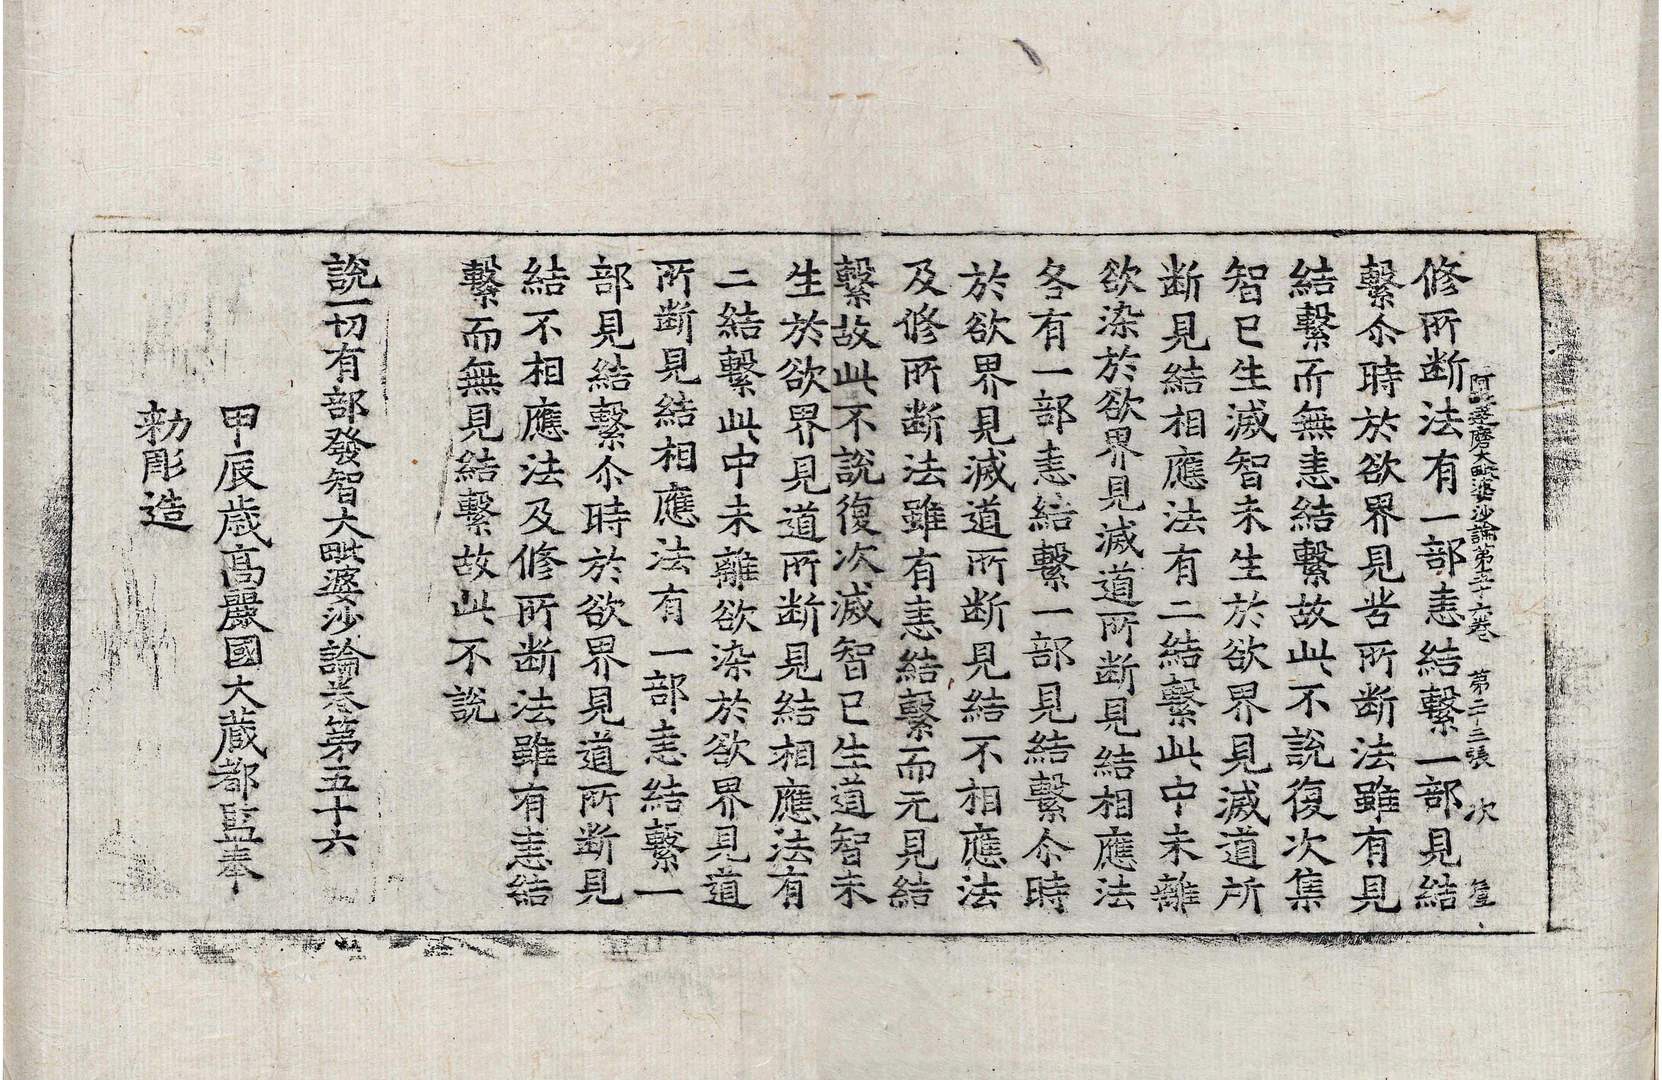 阿毗達磨大毗婆沙論第五十六卷 第二十三張 次
修所断法有一部恚結繫一部見結
繫尒時於欲界見苦所断法雖有見
結繫而無恚結繫故此不說復次集
智已生滅智未生於欲界見滅道所
断見結相應法有二結繫此中未離
欲染於欲界見滅道所断見結相應法
各有一部恚結繫一部見結繫尒時
於欲界見滅道所断見結不相應法
及修所断法雖有恚結繫而无見結
繫故此不說復次滅智已生道智未
生於欲界見道所断見結相應法有
二結繫此中未離欲染於欲界見道
所断見結相應法有一部恚結繫一
部見結繫尒時於欲界見道所断見
結不相應法及修所断法雖有恚結
繫而無見結繫故此不說
說一切有部發智大毗婆沙論卷第五十六
甲辰歲高麗國大藏都監奉
勑彫造